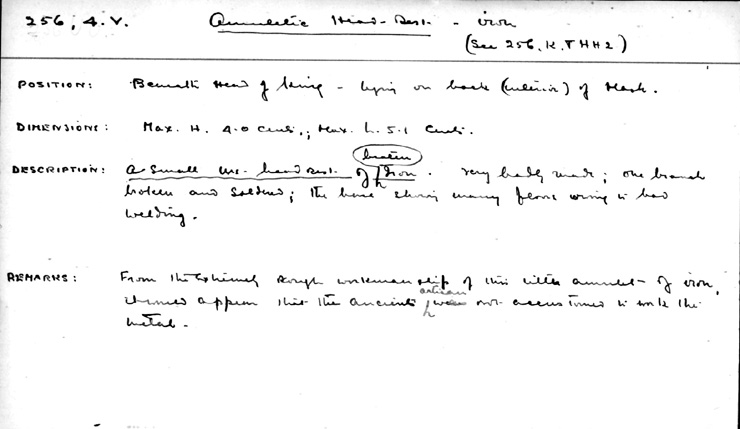 256, 4.V. Amuletic Head-Rest. - iron
(See 256. K.T HH2)
POSITION: Beneath Head of King - lying on back (interior) of Mask.
DIMENSIONS: Max. H. 4.0 Cents.; Max. L. 5.1 Cents.
beaten
DESCRIPTION: A small head rest of Iron. Very badly made; one branch
broken and soldered; the base many flaws owing to bad
welding.
REMARKS: From the extremely rough workmanship of this little amulet of iron,
it would appear that the ancient artisan was not accustomed to work the
metal.